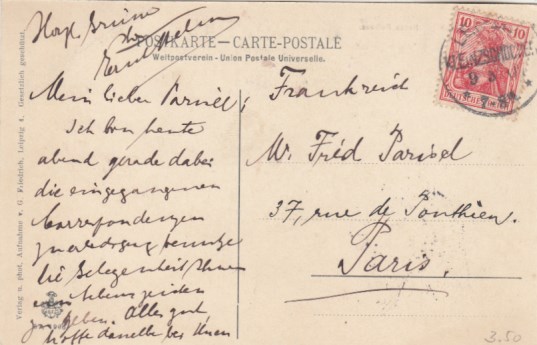 Herzl. Grüsse
POSTKARTE – CARTE-POSTALE
Weltpostverein - Union Postale Universelle.
Mein lieber Parisel,
Ich bin heute
abend gerade dabei
die eingegangenen
Correspondenzen
benutze
die Gelegenheit Ihnen
ein Lebenszeichen
zu geben. Alles gut,
hoffe dasselbe bei Ihnen
Frankreich
Mr. Fréd Parisel
37, rue de Ponthieu.
Paris.
10 10
DEUTSCHES REICH
Verlag u. phot. Aufnahme v. G. Friedrich, Leipzig 4. Gesetzlich geschützt.
3.50